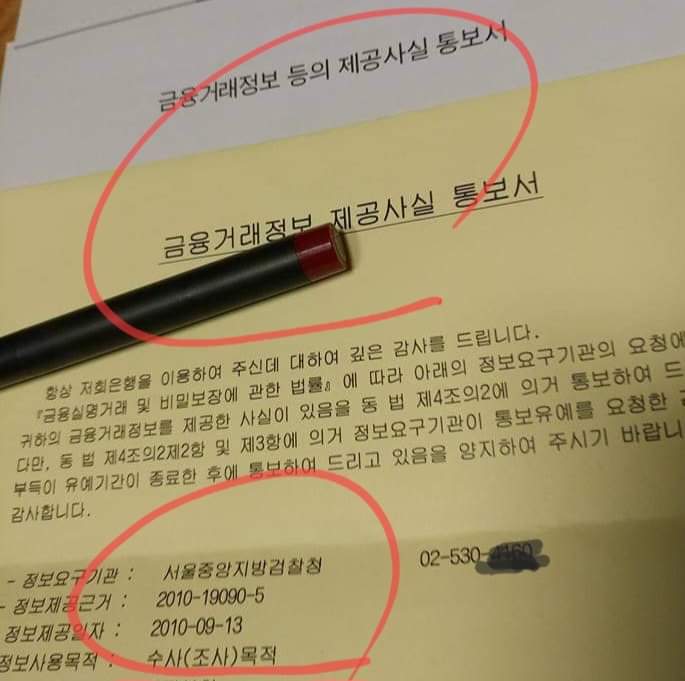 금융거래정보 등의 제공사실 통보서
금융거래정보 제공사실 통보서
항상 저희은행을 이용하여 주신데 대하여 깊은 감사를 드립니다.
『금융실명거래 및 비밀보장에 관한 법률』에 따라 아래의 정보요구기관의 요청에
귀하의 금융거래정보를 제공한 사실이 있음을 동 법 제4조의2에 의거 통보하여 드
다만, 동 법 제4조의2제2항 및 제3항에 의거 정보요구기관이 통보유예를 요청한
부득이 유예기간이 종료한 후에 통보하여 드리고 있음을 양지하여 주시기 바랍니
감사합니다.
- 정보요구기관 : 서울중앙지방검찰청 02-530-
- 정보제공근거 : 2010-19090-5
정보제공일자 : 2010-09-13
정보사용목적 : 수사(조사)목적